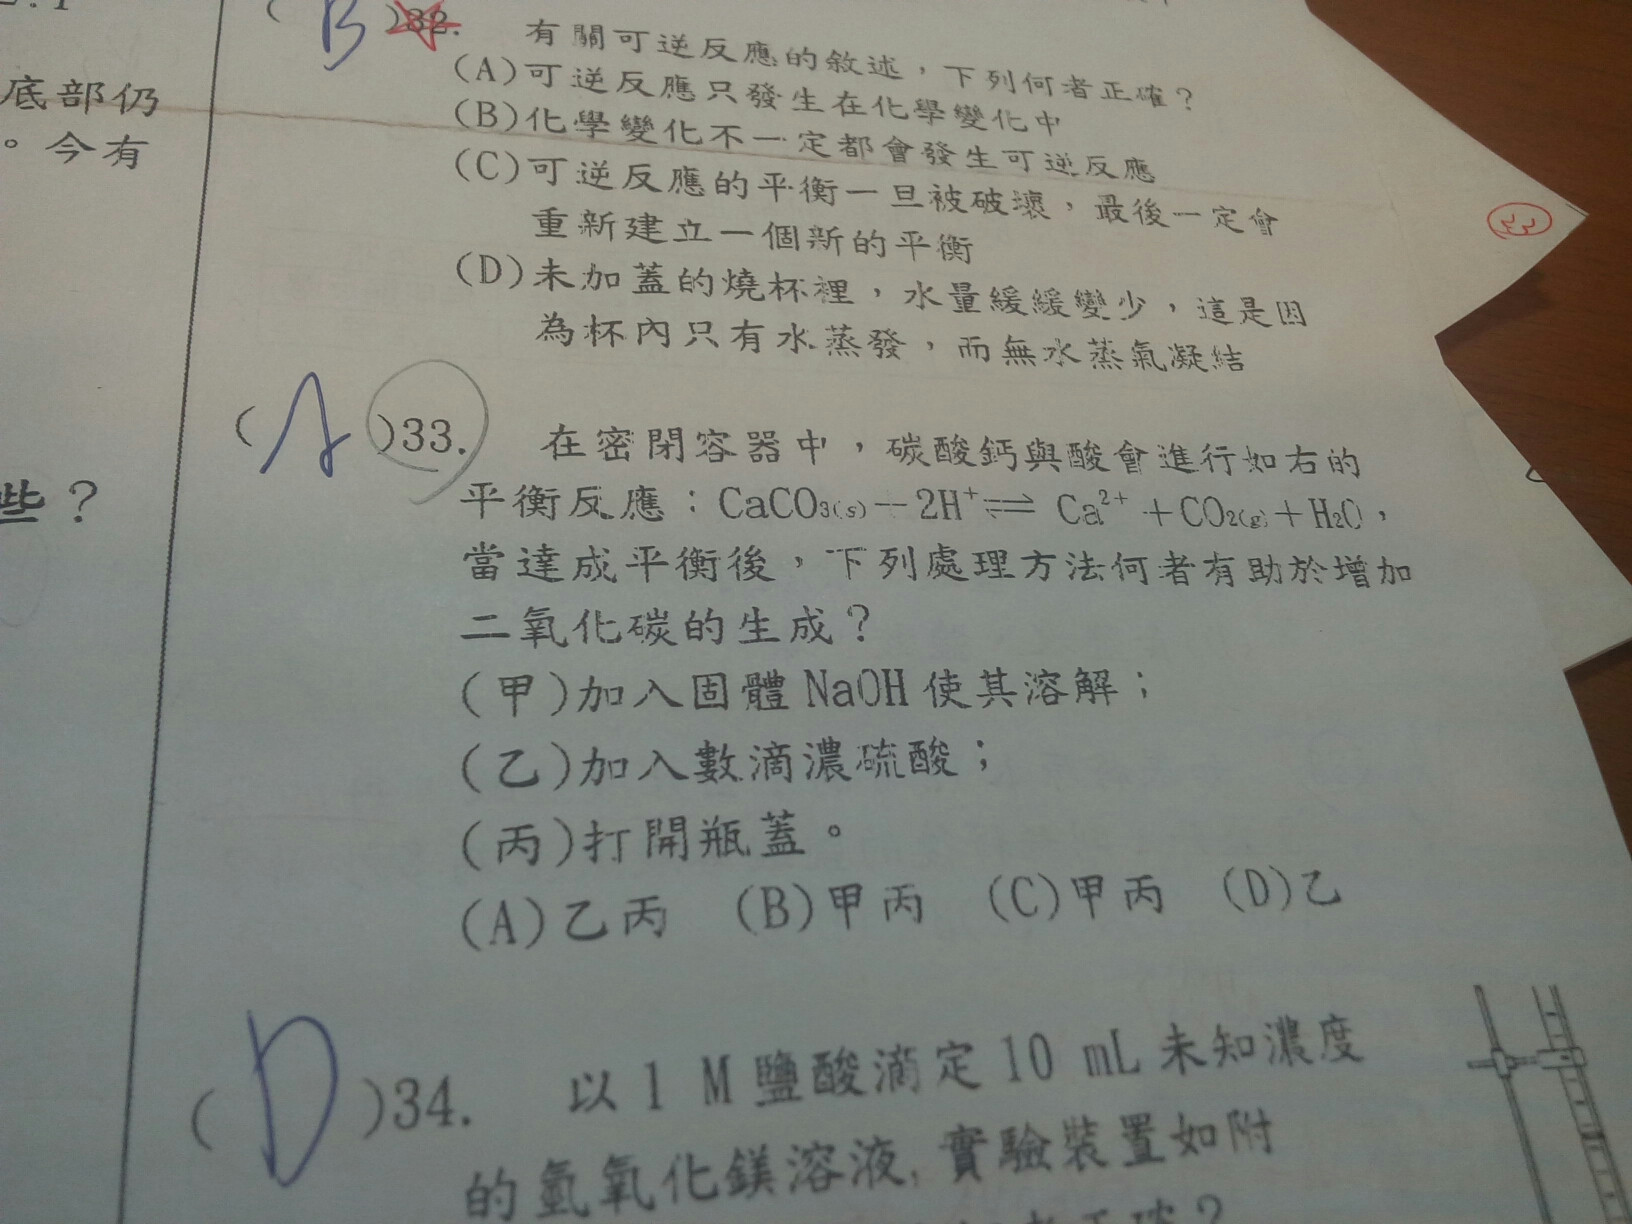 底部仍
。今有
些？
( B )32. 有關可逆反應的敘述，下列何者正確？
(A)可逆反應只發生在化學變化中
(B)化學變化不一定都會發生可逆反應
(C)可逆反應的平衡一旦被破壞，最後一定會
重新建立一個新的平衡
(D)未加蓋的燒杯裡，水量緩緩變少，這是因
為杯內只有水蒸發，而無水蒸氣凝結
( A )33. 在密閉容器中，碳酸鈣與酸會進行如右的
平衡反應：CaCO₃(s)＋2H⁺⇌ Ca²⁺＋CO₂(g)＋H₂O，
當達成平衡後，下列處理方法何者有助於增加
二氧化碳的生成？
(甲)加入固體 NaOH 使其溶解；
(乙)加入數滴濃硫酸；
(丙)打開瓶蓋。
(A)乙丙 (B)甲丙 (C)甲丙 (D)乙
( D )34. 以 1 M 鹽酸滴定 10 mL 未知濃度
的氫氧化鎂溶液, 實驗裝置如附